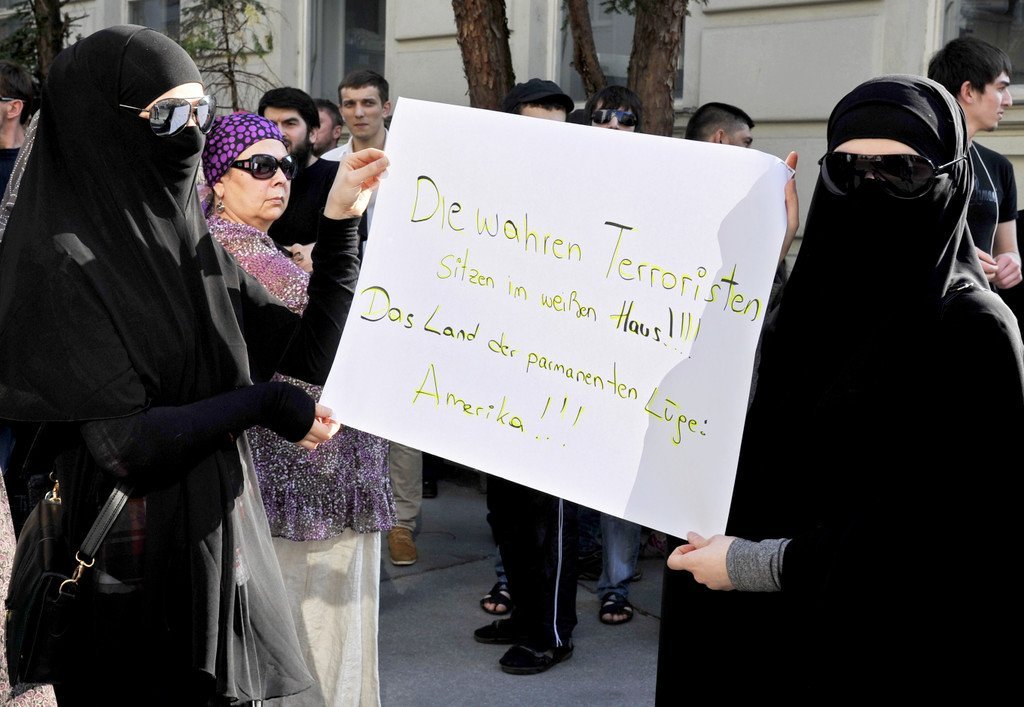 Die wahren Terroristen
sitzen im weißen Haus!!!!
Das Land der parmanenten Lüge:
Amerika!!!